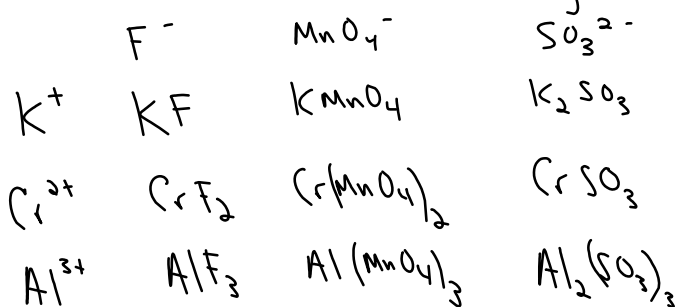 F⁻ MnO₄⁻ SO₃²⁻
K⁺ KF KMnO₄ K₂SO₃
Cr²⁺ CrF₂ Cr(MnO₄)₂ CrSO₃
Al³⁺ AlF₃ Al(MnO₄)₃ Al₂(SO₃)₃